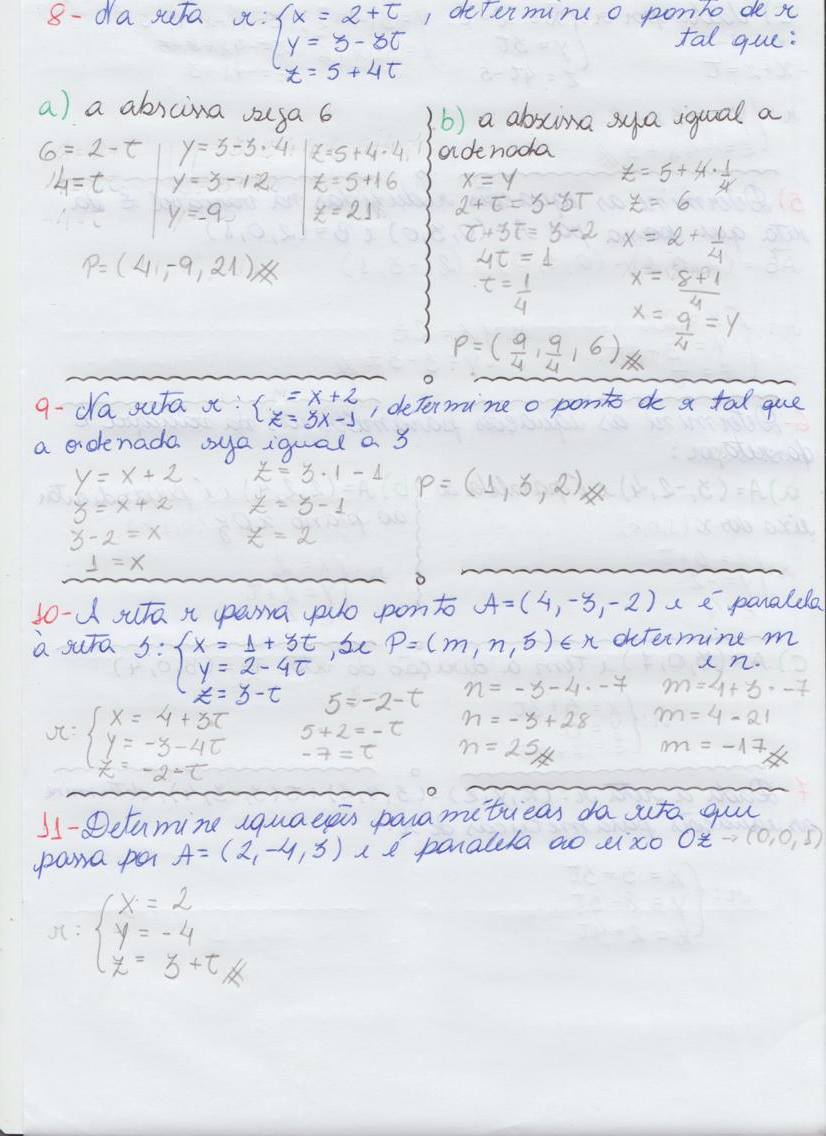 8- Na reta r: { x = 2+t , determine o ponto de r
y = 3 - 3t tal que:
z = 5 + 4t
a) a abscissa seja 6
6 = 2 - t | y = 3-3·4 | z = 5+4·4
4 = t | y = 3-12 | z = 5+16
y = -9 | z = 21
P = (4, -9, 21)
b) a abscissa seja igual a
ordenada
x = y
2+t = 3-3t
t+3t = 3-2
4t = 1
t = 1/4
z = 5 + 4·1/4
z = 6
x = 2 + 1/4
x = 8+1/4
x = 9/4 = y
P = (9/4, 9/4, 6)
9- Na reta r: { = x+2
z = 3x-1 , determine o ponto de r tal que
a ordenada seja igual a 3
y = x + 2
3 = x + 2
3-2 = x
1 = x
z = 3·1 - 1
z = 3-1
z = 2
P = (1, 3, 2)
10- A reta r passa pelo ponto A = (4, -3, -2) e é paralela
à reta s: { x = 1 + 3t , Se P = (m, n, 5) ∈ r determine m
y = 2 - 4t e n.
z = 3 - t
r: { x = 4 + 3t
y = -3 - 4t
z = -2 - t
5 = -2 - t
5+2 = -t
-7 = t
n = -3-4·-7
n = -3+28
n = 25
m = 4+3·-7
m = 4-21
m = -17
11- Determine equações paramétricas da reta que
passa por A = (2, -4, 3) e é paralela ao eixo Oz → (0,0,1)
r: { x = 2
y = -4
z = 3 + t